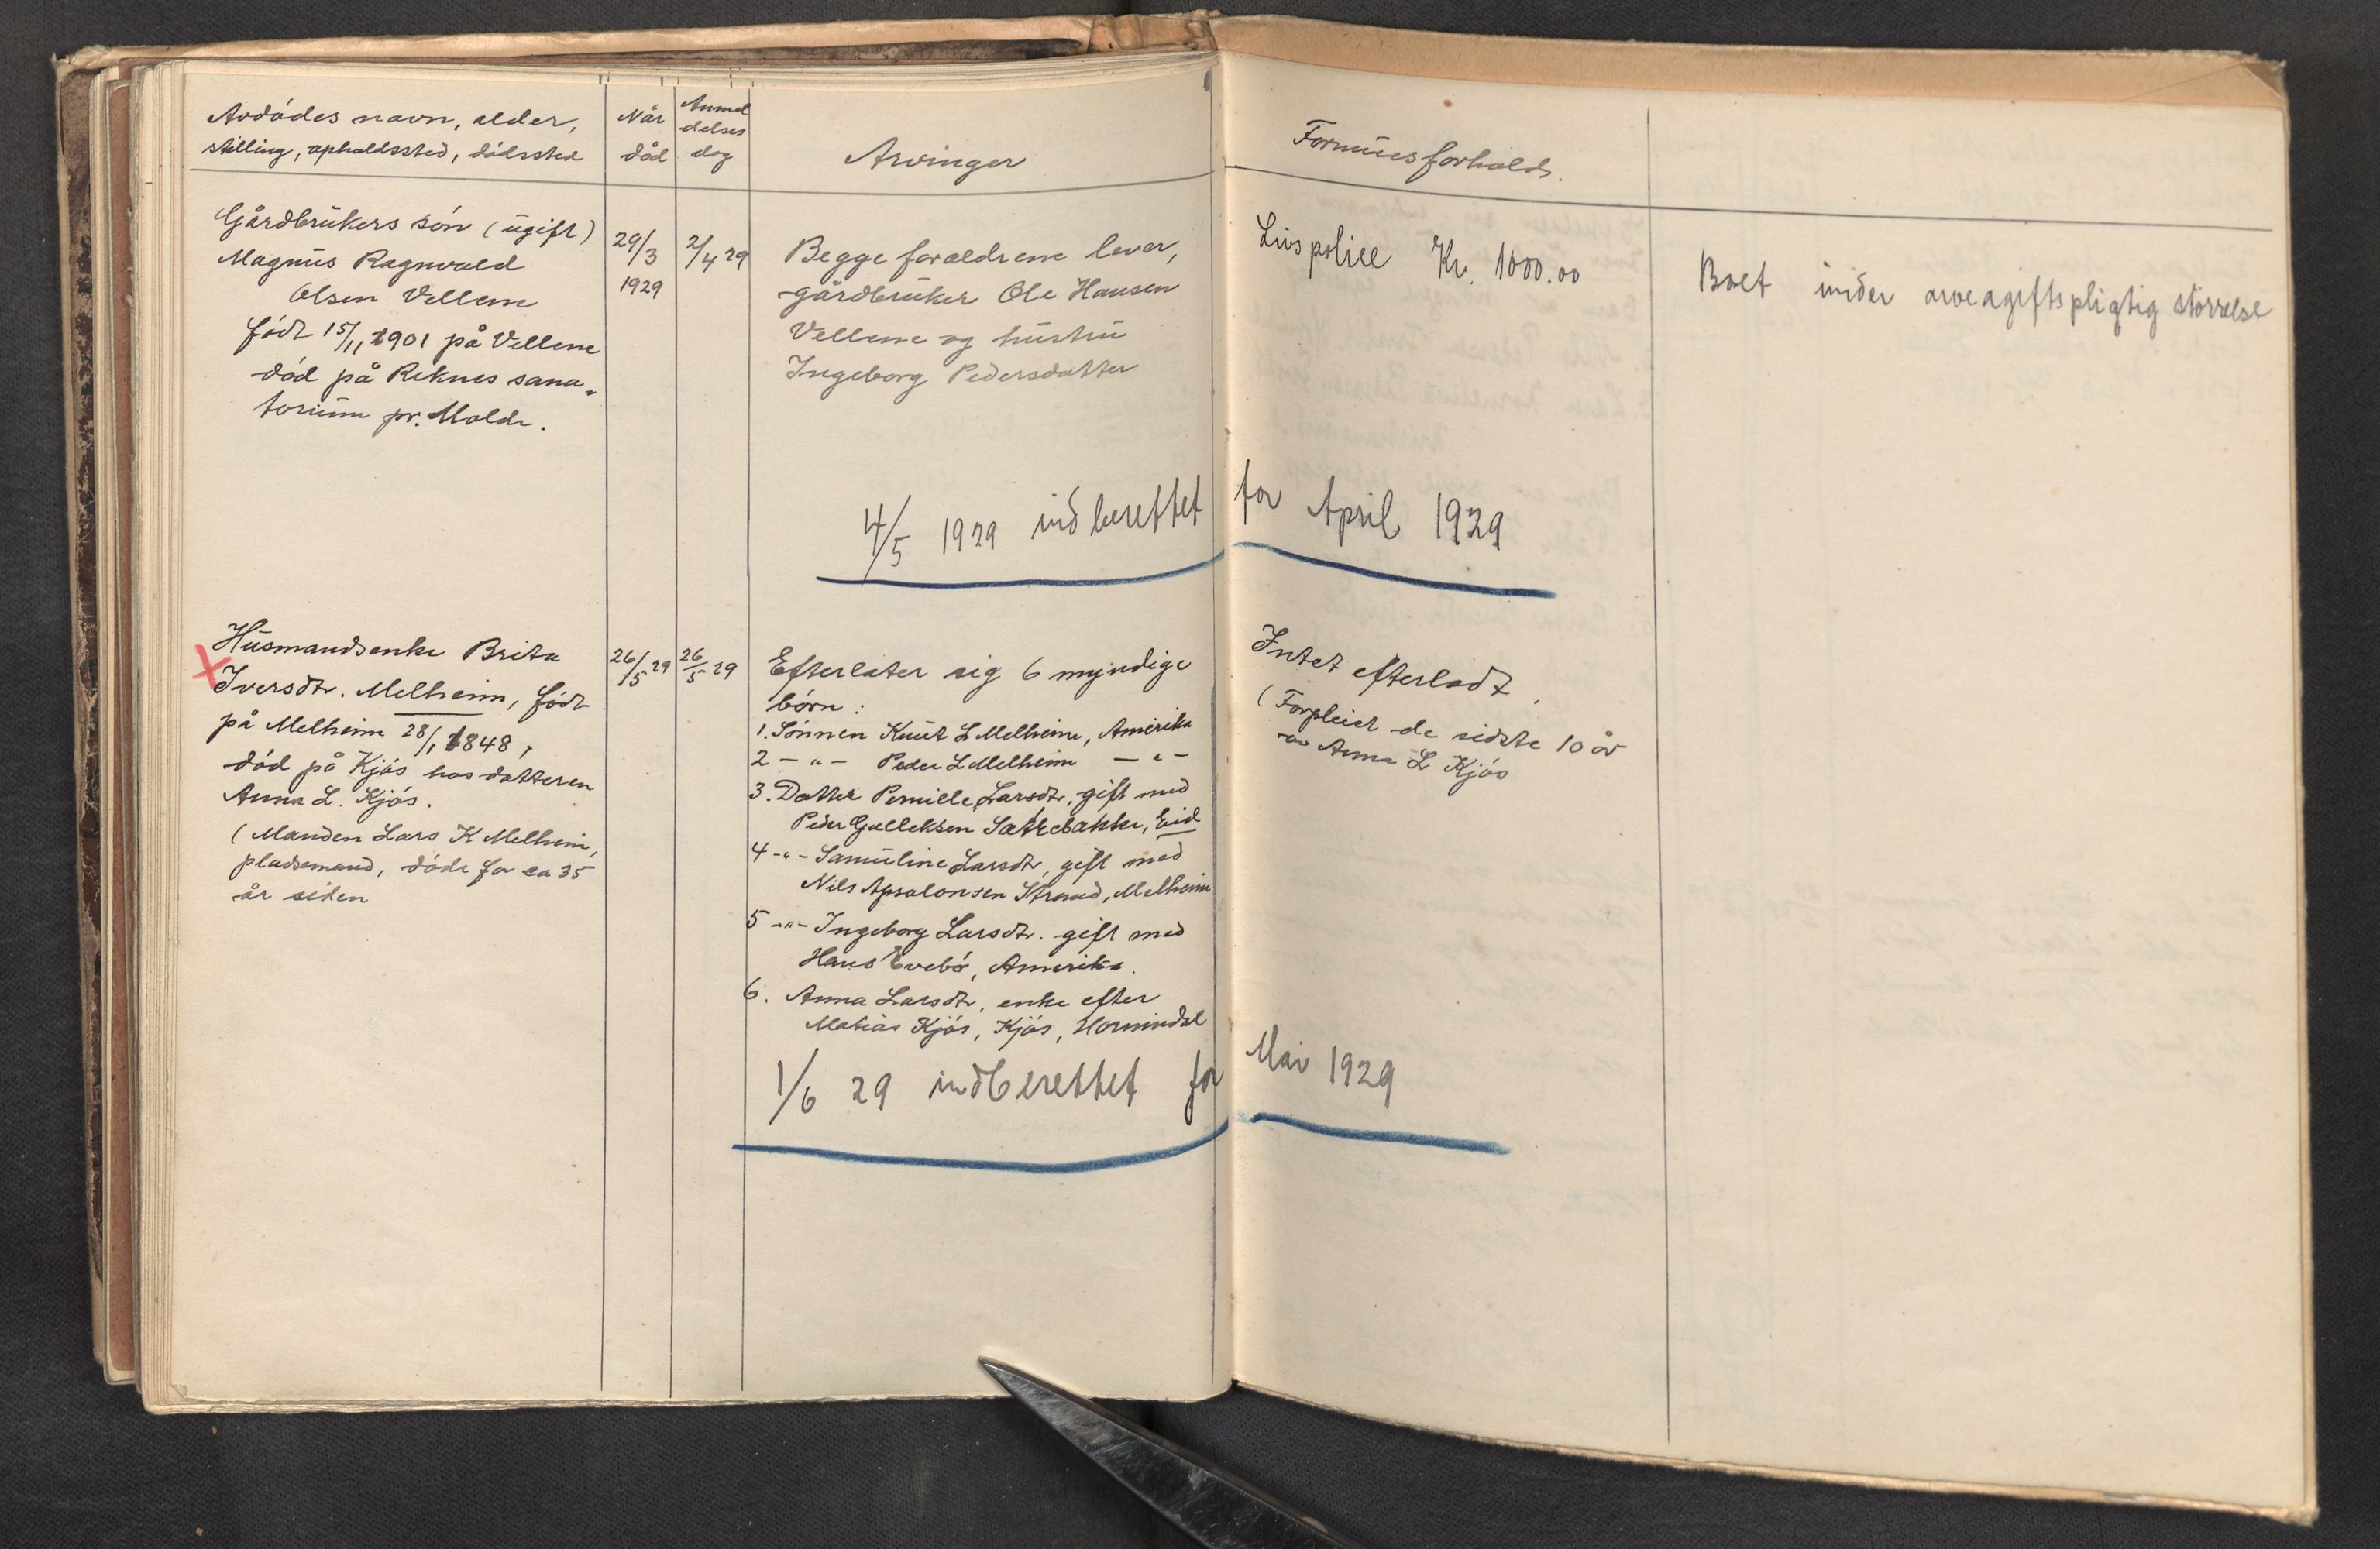 Avdødes navn, alder,
stilling, opholdssted, dødssted
Når
død
Anmel
delses
dag
Arvinger
Formuesforhold.
Gårdbrukers søn (ugift)
Magnus Ragnvald
Olsen Vellene
født 15/11 1901 på Vellene
død på Reknes sana-
torium pr. Molde.
29/3
1929
2/4 29
Begge forældrene lever,
gårdbruker Ole Hansen
Vellene og hustru
Ingeborg Pedersdatter
Livspolice Kr. 1000.00
Boet under arveagiftspligtig størrelse
4/5 1929 indberettet for April 1929
Husmandsenke Brita
Iversdtr. Melheim, født
på Melheim 28/1 1848,
død på Kjøs hos datteren
Anna L. Kjøs.
(Manden Lars K Melheim,
pladsemand, døde for ca 35
år siden
26/5 29
26/5 29
Efterlater sig 6 myndige
børn:
1. Sønnen Knut L Melheim, Amerika
2 - " - Peder L Melheim - " -
3. Datter Pernille Larsdtr, gift med
Peder Gulleksen Sætrebakke, Eid
4 - " - Samuline Larsdtr, gift med
Nils Apsalonsen Strand, Melheim
5 - " - Ingeborg Larsdtr. gift med
Hans Evebø, Amerika.
6. Anna Larsdtr, enke efter
Matias Kjøs, Kjøs, Hornindal
Intet efterladt.
(Forpleiet de sidste 10 år
av Anna L Kjøs
1/6 29 indberettet for Mai 1929